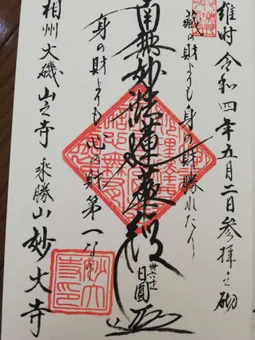 維時 令和四年五月二日参拝之砌
蔵の財よりも身の財勝れたり
南無妙法蓮華経
日圓
身の財よりも心の財第一なり
相州大磯山之寺 乘勝山 妙大寺